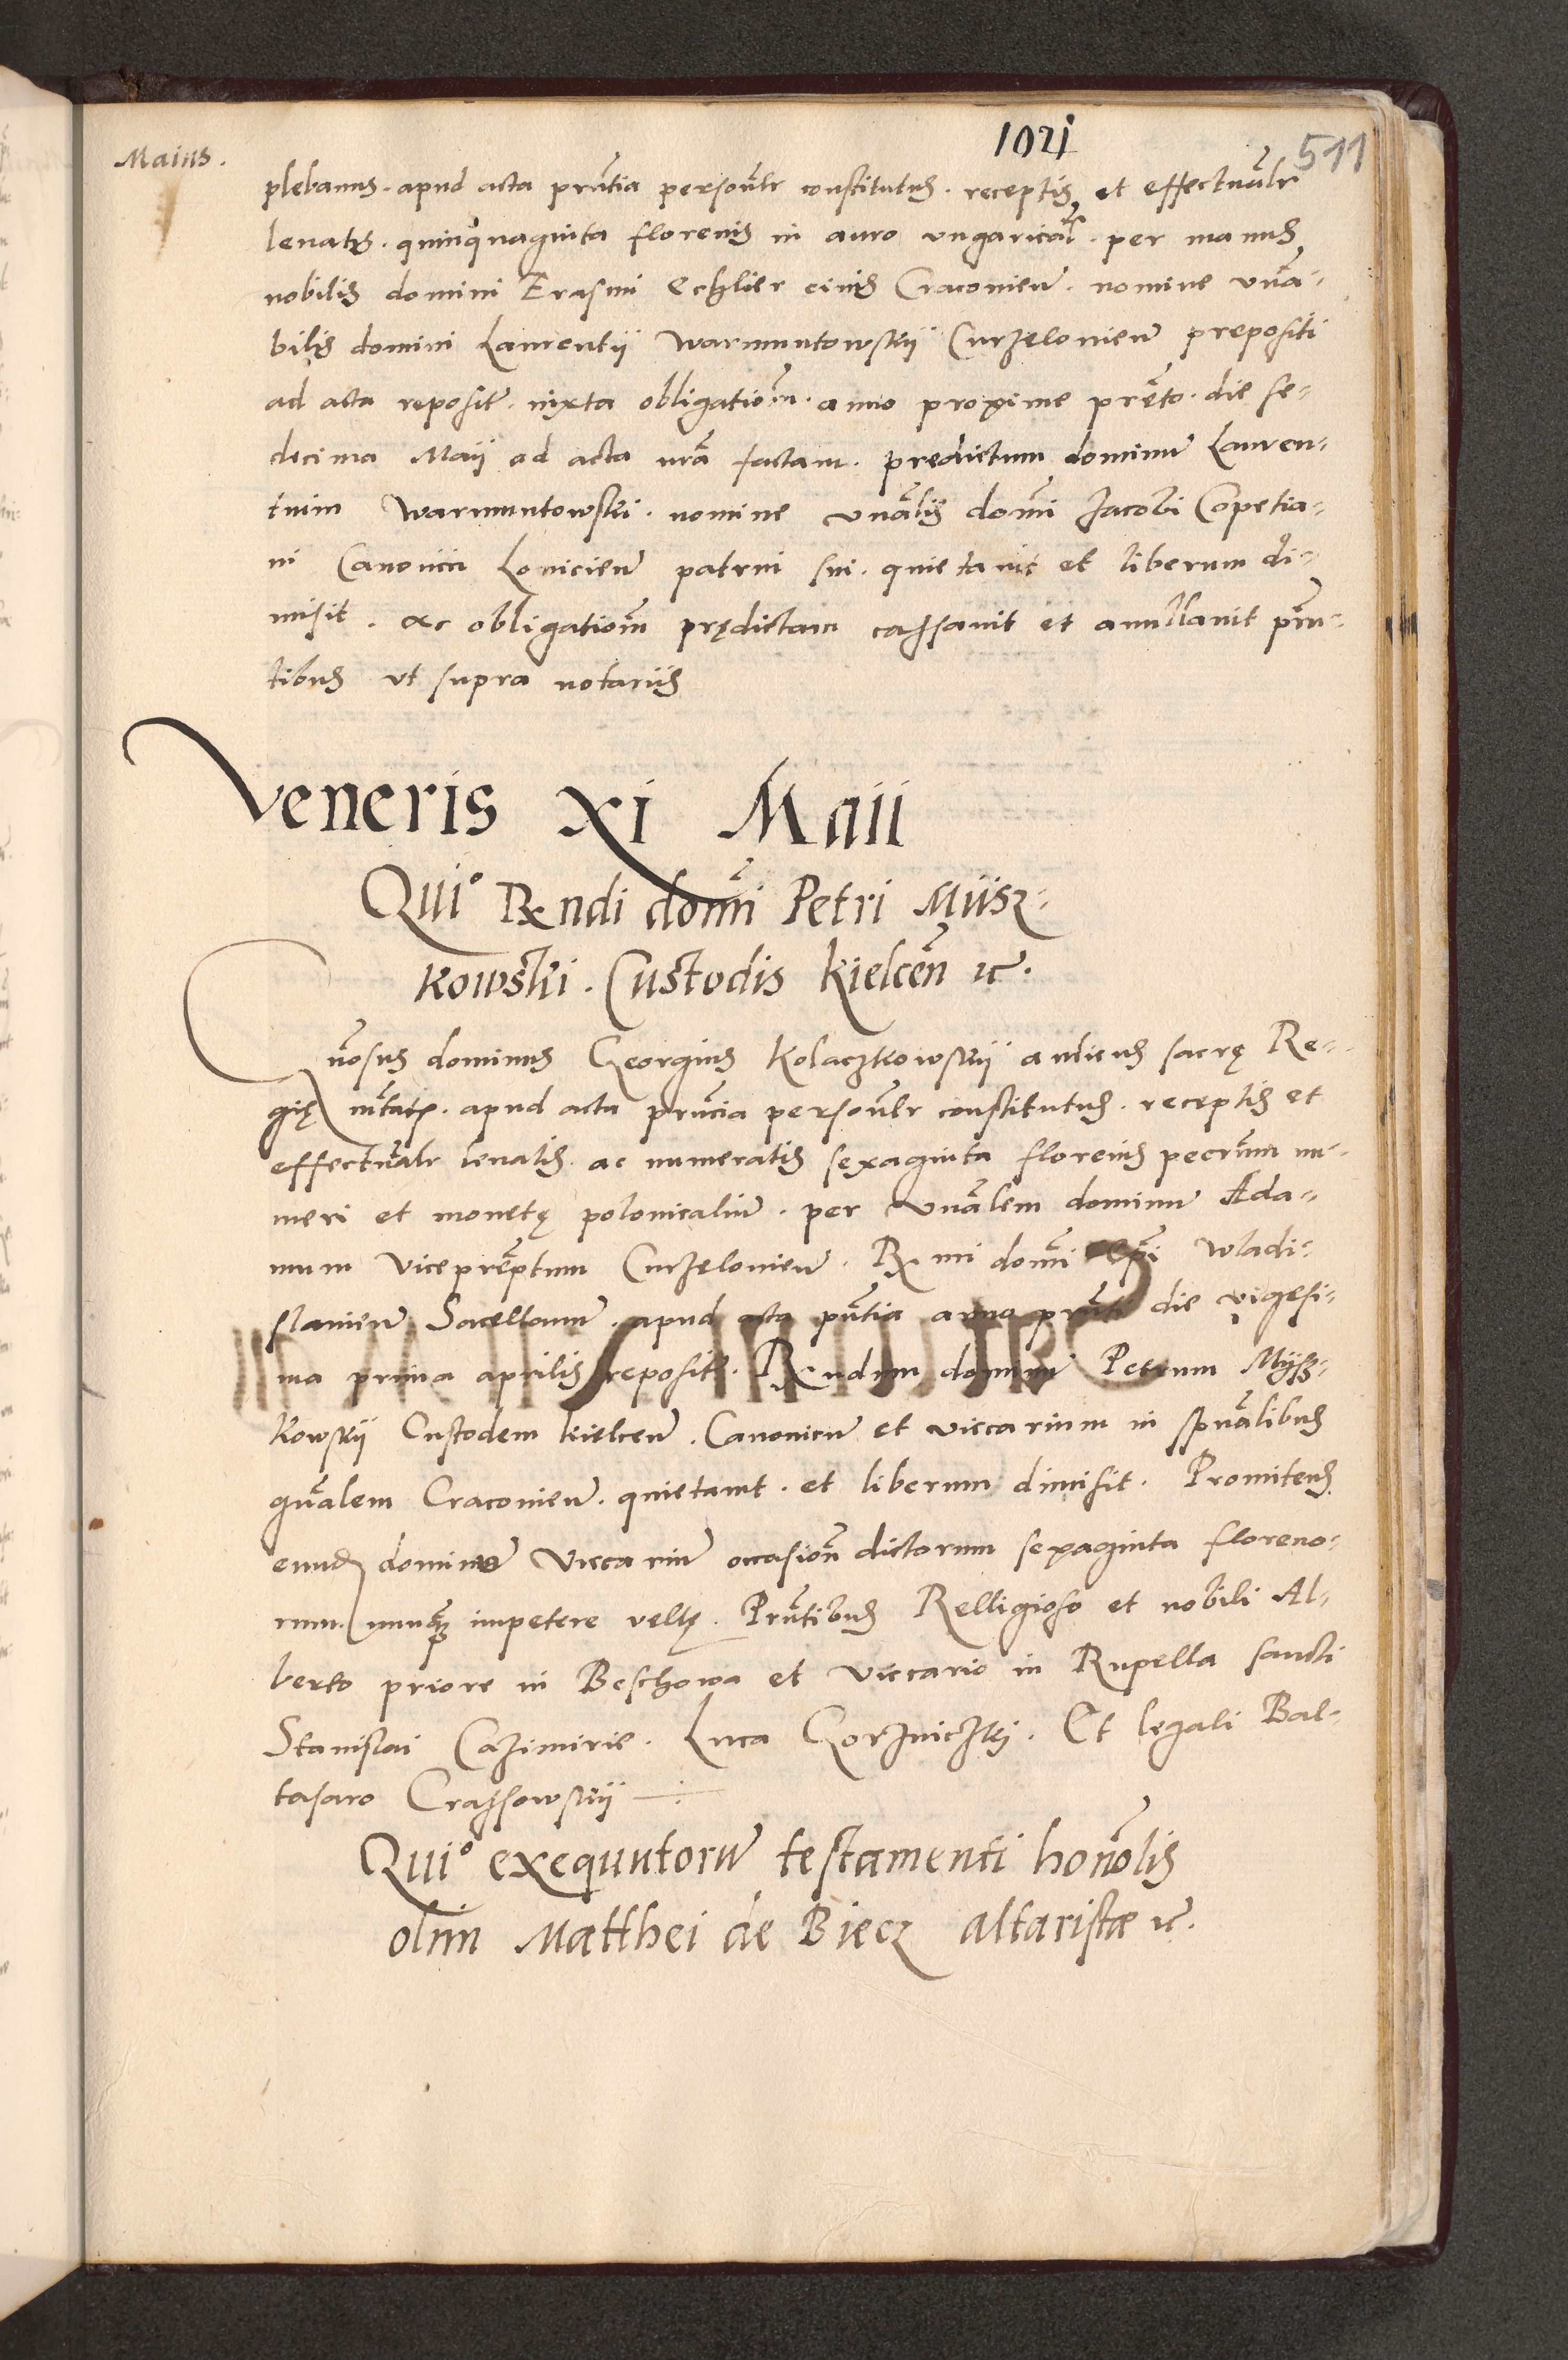 1021
511
Maius.
plebanus. apud acta prñtia personlr constitutus. receptis et effectualr
levatis. quinquaginta florenis in auro ungarical. per manus
nobilis domini Erasmi Echlier civis Cracovien. nomine vña-
bilis domini Laurentii Warmuntowskij Curzelovien prepositi
ad acta reposit. iuxta obligationem. anno proxime preto. die se-
decima Maij ad acta nrã factam. predictum dominum Lauren-
tium Warmuntowski. nomine vñalis domi Jacobi Copetia-
ni Canonici Lovicien patrui sui. quietavit et liberum di-
misit. ac obligationem prędictam cassavit et anullavit prn-
tibus ut supra notariis
Veneris XI Maii
Quio Rndi domi Petri Miisz-
kowski. Custodis Kielcen etc.
Gnosus dominus Georgius Kolaczkowskij aulicus sacrę Re-
gię mtatis. apud acta prñcia personlr constitutus. receptis et
effectualr levatis. ac numeratis sexaginta florenis pecrum nu-
meri et monetę polonicalium. per vñalem dominum Ada-
mum viceprẽptum Curzelovien. Rmi domi Epi Wladi-
slavien Sacellanum. apud acta pñtia anno prñti die vigesi-
ma prima aprilis reposit. Rndum dominum Petrum Mijsz-
kowskij Custodem Kielcen. Canonicum et viccarium in spũalibus
gñalem Cracovien. quietavit. et liberum dimisit. Promitens
eundem dominum viccarium occasion dictorum sexaginta floreno-
rum nunq impetere vellę. Prñtibus Relligioso et nobili Al-
berto priore in Beschowa et viccario in Rupella sancti
Stanislai Cazimirie. Luca Gorzniczki. Et legali Bal-
tasaro Crassowskij
Quio exequutorum testamenti honolis
olim Matthei de Biecz altaristæ etc.